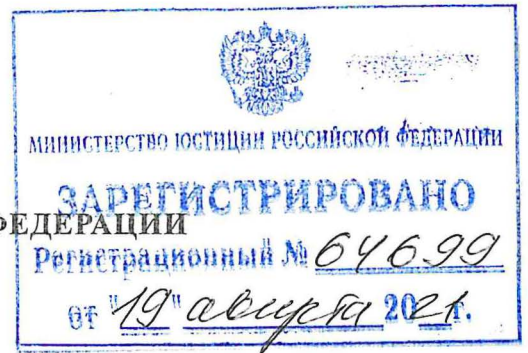 МИНИСТЕРСТВО ЮСТИЦИИ РОССИЙСКОЙ ФЕДЕРАЦИИ
ЗАРЕГИСТРИРОВАНО
ФЕДЕРАЦИИ
Регистрационный № 64699
от "19" августа 2021г.